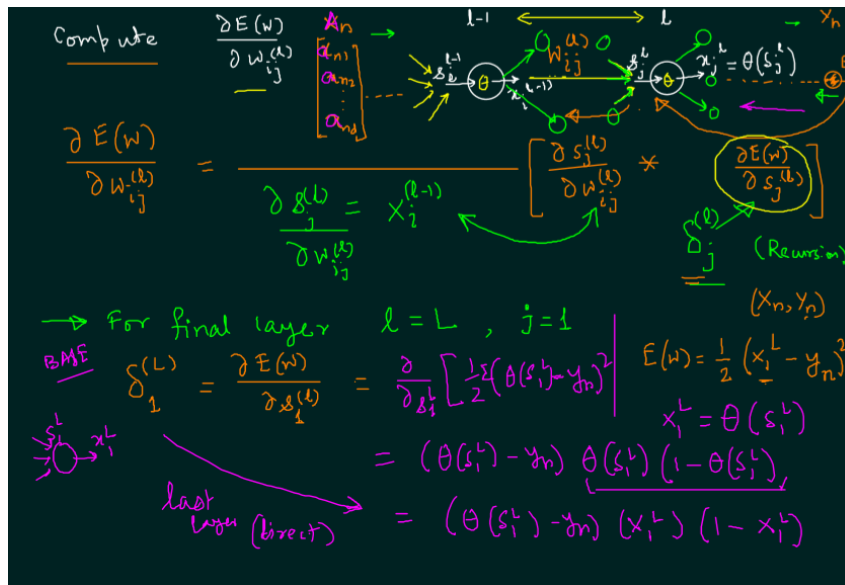 Compute ∂E(w) / ∂w_ij^(l)
x_n → l-1 ⟷ l → x_n
[x_n1 x_n2 ⋮ x_nd]
s_i^(l-1) θ x_i^(l-1) w_ij^(l) s_j^l θ x_j^l = θ(s_j^l)
∂E(w) / ∂w_ij^(l) = [ ∂s_j^(l) / ∂w_ij^(l) * ∂E(w) / ∂s_j^(l) ]
∂s_j^(l) / ∂w_ij^(l) = x_i^(l-1)
δ_j^(l) (Recursion)
(x_n, y_n)
→ For final layer l = L , j = 1
BASE
δ_1^(L) = ∂E(w) / ∂s_1^(l) = ∂ / ∂s_1^L [ 1/2 Σ(θ(s_1^L) - y_n)^2
E(w) = 1/2 (x_1^L - y_n)^2
x_1^L = θ(s_1^L)
s_1^L → x_1^L
= (θ(s_1^L) - y_n) θ(s_1^L) (1 - θ(s_1^L)
last layer (direct)
= (θ(s_1^L) - y_n) (x_1^L) (1 - x_1^L)